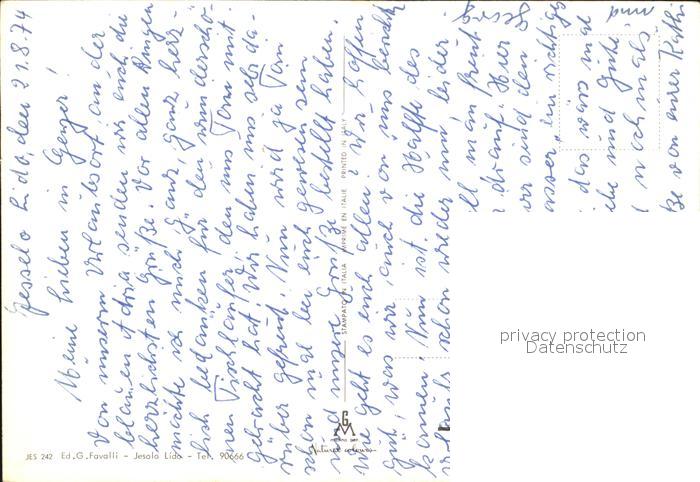 Jesselo Lido, den 21.8.74
Meine Lieben in Geyer!
Von unserm Urlaubsort an der
blauen Adria senden wir euch die
herzlichsten Grüße. Vor allen Dingen
möchte ich mich ganz, ganz herz-
lich bedanken für den wunderschö-
nen Tischläufer den uns Toni mit-
gebracht hat. Wir haben uns sehr da-
rüber gefreut. Nun wird ja Toni
schon mal bei euch gewesen sein
und unsere Grüße bestellt haben.
Wie geht es euch allen? Wir hoffen
gut, was wir auch von uns berichten
können. Nun ist die Hälfte des
Urlaubs schon wieder um leider.
man freut
drauf. Hier
wir sind den
asser, ein richtiges
das wärs mal
und Grüße
nochmals
ße von eurer Käthi
und
Georg
STAMPATO IN ITALIA IMPRIMÉ EN ITALIE PRINTED IN ITALY
JES 242 Ed. G. Favalli - Jesolo Lido - Tel. 90666
GM
Naturalcolours
privacy protection
Datenschutz